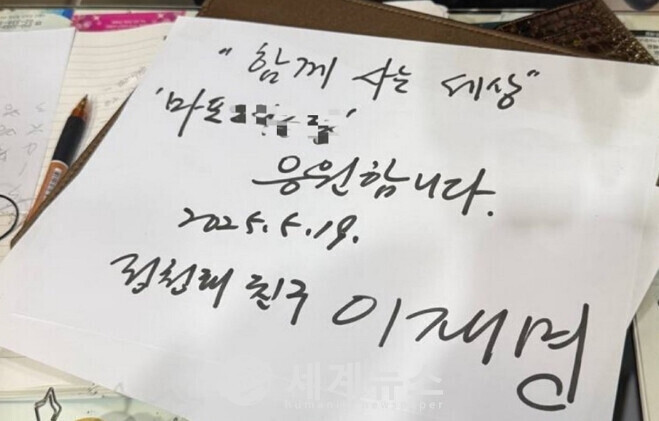 "함께 사는 세상"
'마포
응원합니다.
2025.5.19.
친구 이재명
세계뉴스